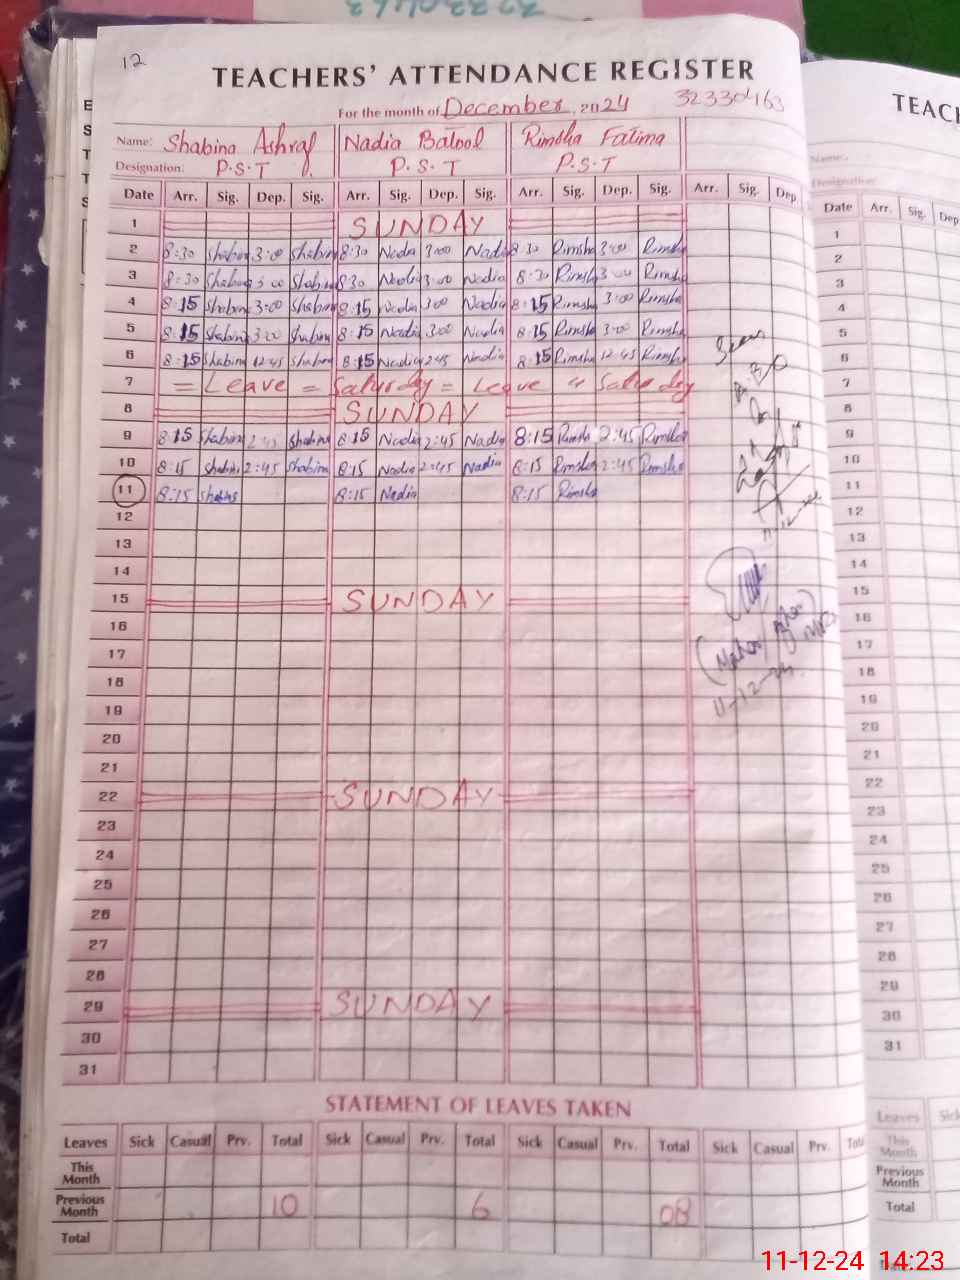 12
TEACHERS' ATTENDANCE REGISTER
For the month of December, 2024 32330463
Name: Shabina Ashraf Nadia Batool Rimsha Fatima
Designation: P.S.T P.S.T P.S.T
Date Arr. Sig. Dep. Sig. Arr. Sig. Dep. Sig. Arr. Sig. Dep. Sig. Arr. Sig. Dep
1 SUNDAY
2 8:30 Shabina 3:00 Shabina 8:30 Nadia 3:00 Nadia 8:30 Rimsha 3:00 Rimsha
3 8:30 Shabina 3:00 Shabina 8:30 Nadia 3:00 Nadia 8:30 Rimsha 3:00 Rimsha
4 8:15 Shabina 3:00 Shabina 8:15 Nadia 3:00 Nadia 8:15 Rimsha 3:00 Rimsha
5 8:15 Shabina 3:00 Shabina 8:15 Nadia 3:00 Nadia 8:15 Rimsha 3:00 Rimsha
6 8:15 Shabina 12:45 Shabina 8:15 Nadia 12:45 Nadia 8:15 Rimsha 12:45 Rimsha
7 = Leave = Saturday = Leave " Saturday
8 SUNDAY
9 8:15 Shabina 2:45 Shabina 8:15 Nadia 2:45 Nadia 8:15 Rimsha 2:45 Rimsha
10 8:15 Shabina 2:45 Shabina 8:15 Nadia 2:45 Nadia 8:15 Rimsha 2:45 Rimsha
11 8:15 Shabina 8:15 Nadia 8:15 Rimsha
12
13
14
15 SUNDAY
16
17
18
11-12-24
19
20
21
22 SUNDAY
23
24
25
26
27
28
29 SUNDAY
30
31
STATEMENT OF LEAVES TAKEN
Leaves Sick Casual Prv. Total Sick Casual Prv. Total Sick Casual Prv. Total Sick Casual Prv.
This Month
Previous Month 10 6 08
Total
TEACH
Name:
Designation:
Date Arr. Sig. Dep
1
2
3
4
5
6
7
8
9
10
11
12
13
14
15
16
17
18
19
20
21
22
23
24
25
26
27
28
29
30
31
Leaves Sick
This Month
Previous Month
Total
11-12-24 14:23